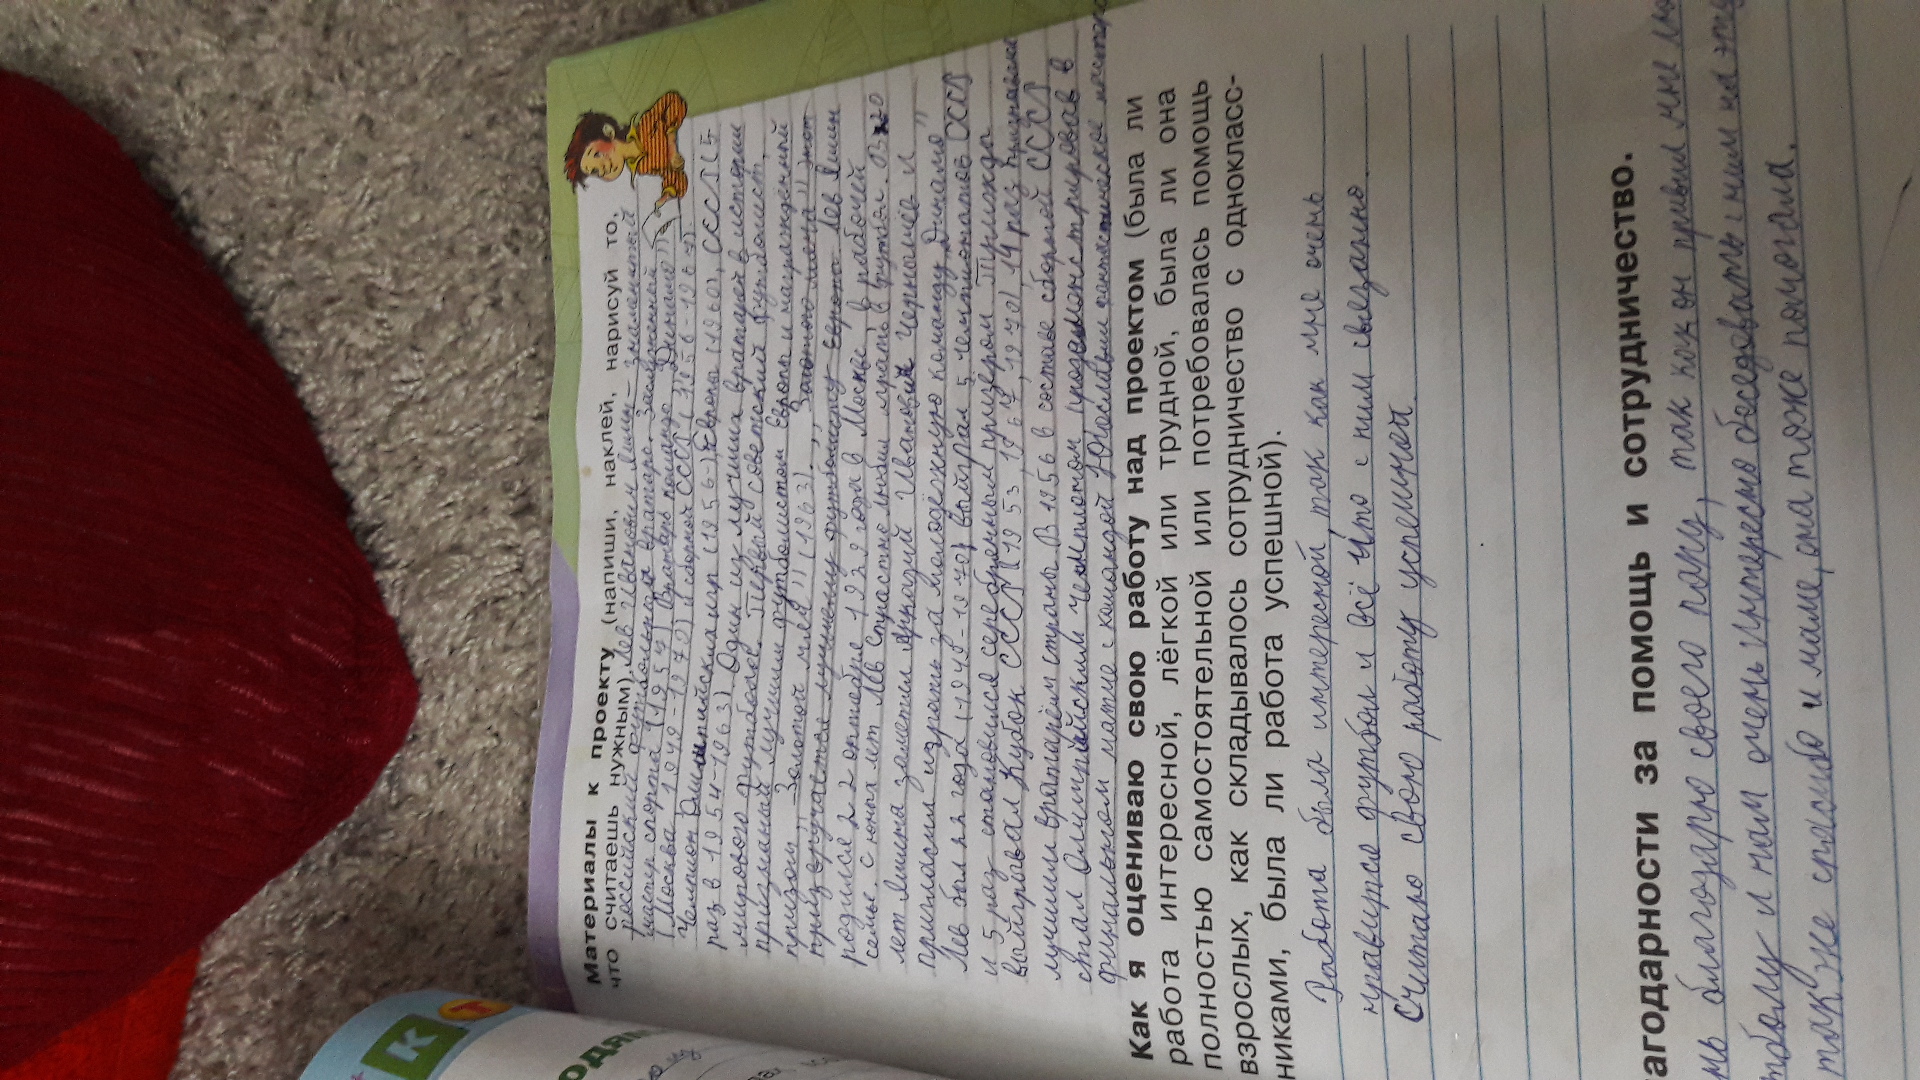 К
Т
ОДА
Материалы к проекту (напиши, наклей, нарисуй то,
что считаешь нужным). Лев Иванович Яшин – знаменитый
российский футбольный вратарь. Заслуженный
мастер спорта (1957). Вратарь команды „Динамо”
(Москва, 1949-1970) и сборной СССР (1956-1967)
Чемпион Олимпийских игр (1956-), Европы (1960), СССР (5
раз в 1954-1963). Один из лучших вратарей в истории
мирового футбола. Первый советский футболист,
признаный лучшим футболистом Европы и награжденный
призом „Золотой мяч” (1963). „Золотого мяча” этот
приз вручается лучшему футболисту Европы. Лев Яшин
родился 22 октября 1929 года в Москве, в рабочей
семье. С юных лет Лев страстно любил играть в футбол. В 20
лет Яшина заметил Аркадий Иванович Чернышев и
пригласил играть за молодёжную команду „Динамо”
Лев был 22 года (1949-1970) выйграл 5 чемпионатов СССР
и 5 раз становился серебрянным призёром. Трижды
выйгрывал Кубок СССР (1953, 1967, 1970), 14 раз признавался
лучшим вратарём страны. В 1956 в составе сборной СССР
стал Олимпийским чемпионом, продемонстрировав в
финальном матче с командой Югославии фантастическое
Как я оцениваю свою работу над проектом (была ли
работа интересной, лёгкой или трудной, была ли она
полностью самостоятельной или потребовалась помощь
взрослых, как складывалось сотрудничество с однокласс-
никами, была ли работа успешной).
Работа была интересной, так как мне очень
нравится футбол и всё что с ним связанно.
Считаю свою работу успешной.
лагодарности за помощь и сотрудничество.
нь благодарю своего папу, так как он привил мне лю
тболу и нам очень интересно беседовать с ним на эту
так же спасибо и маме, она тоже помогала.